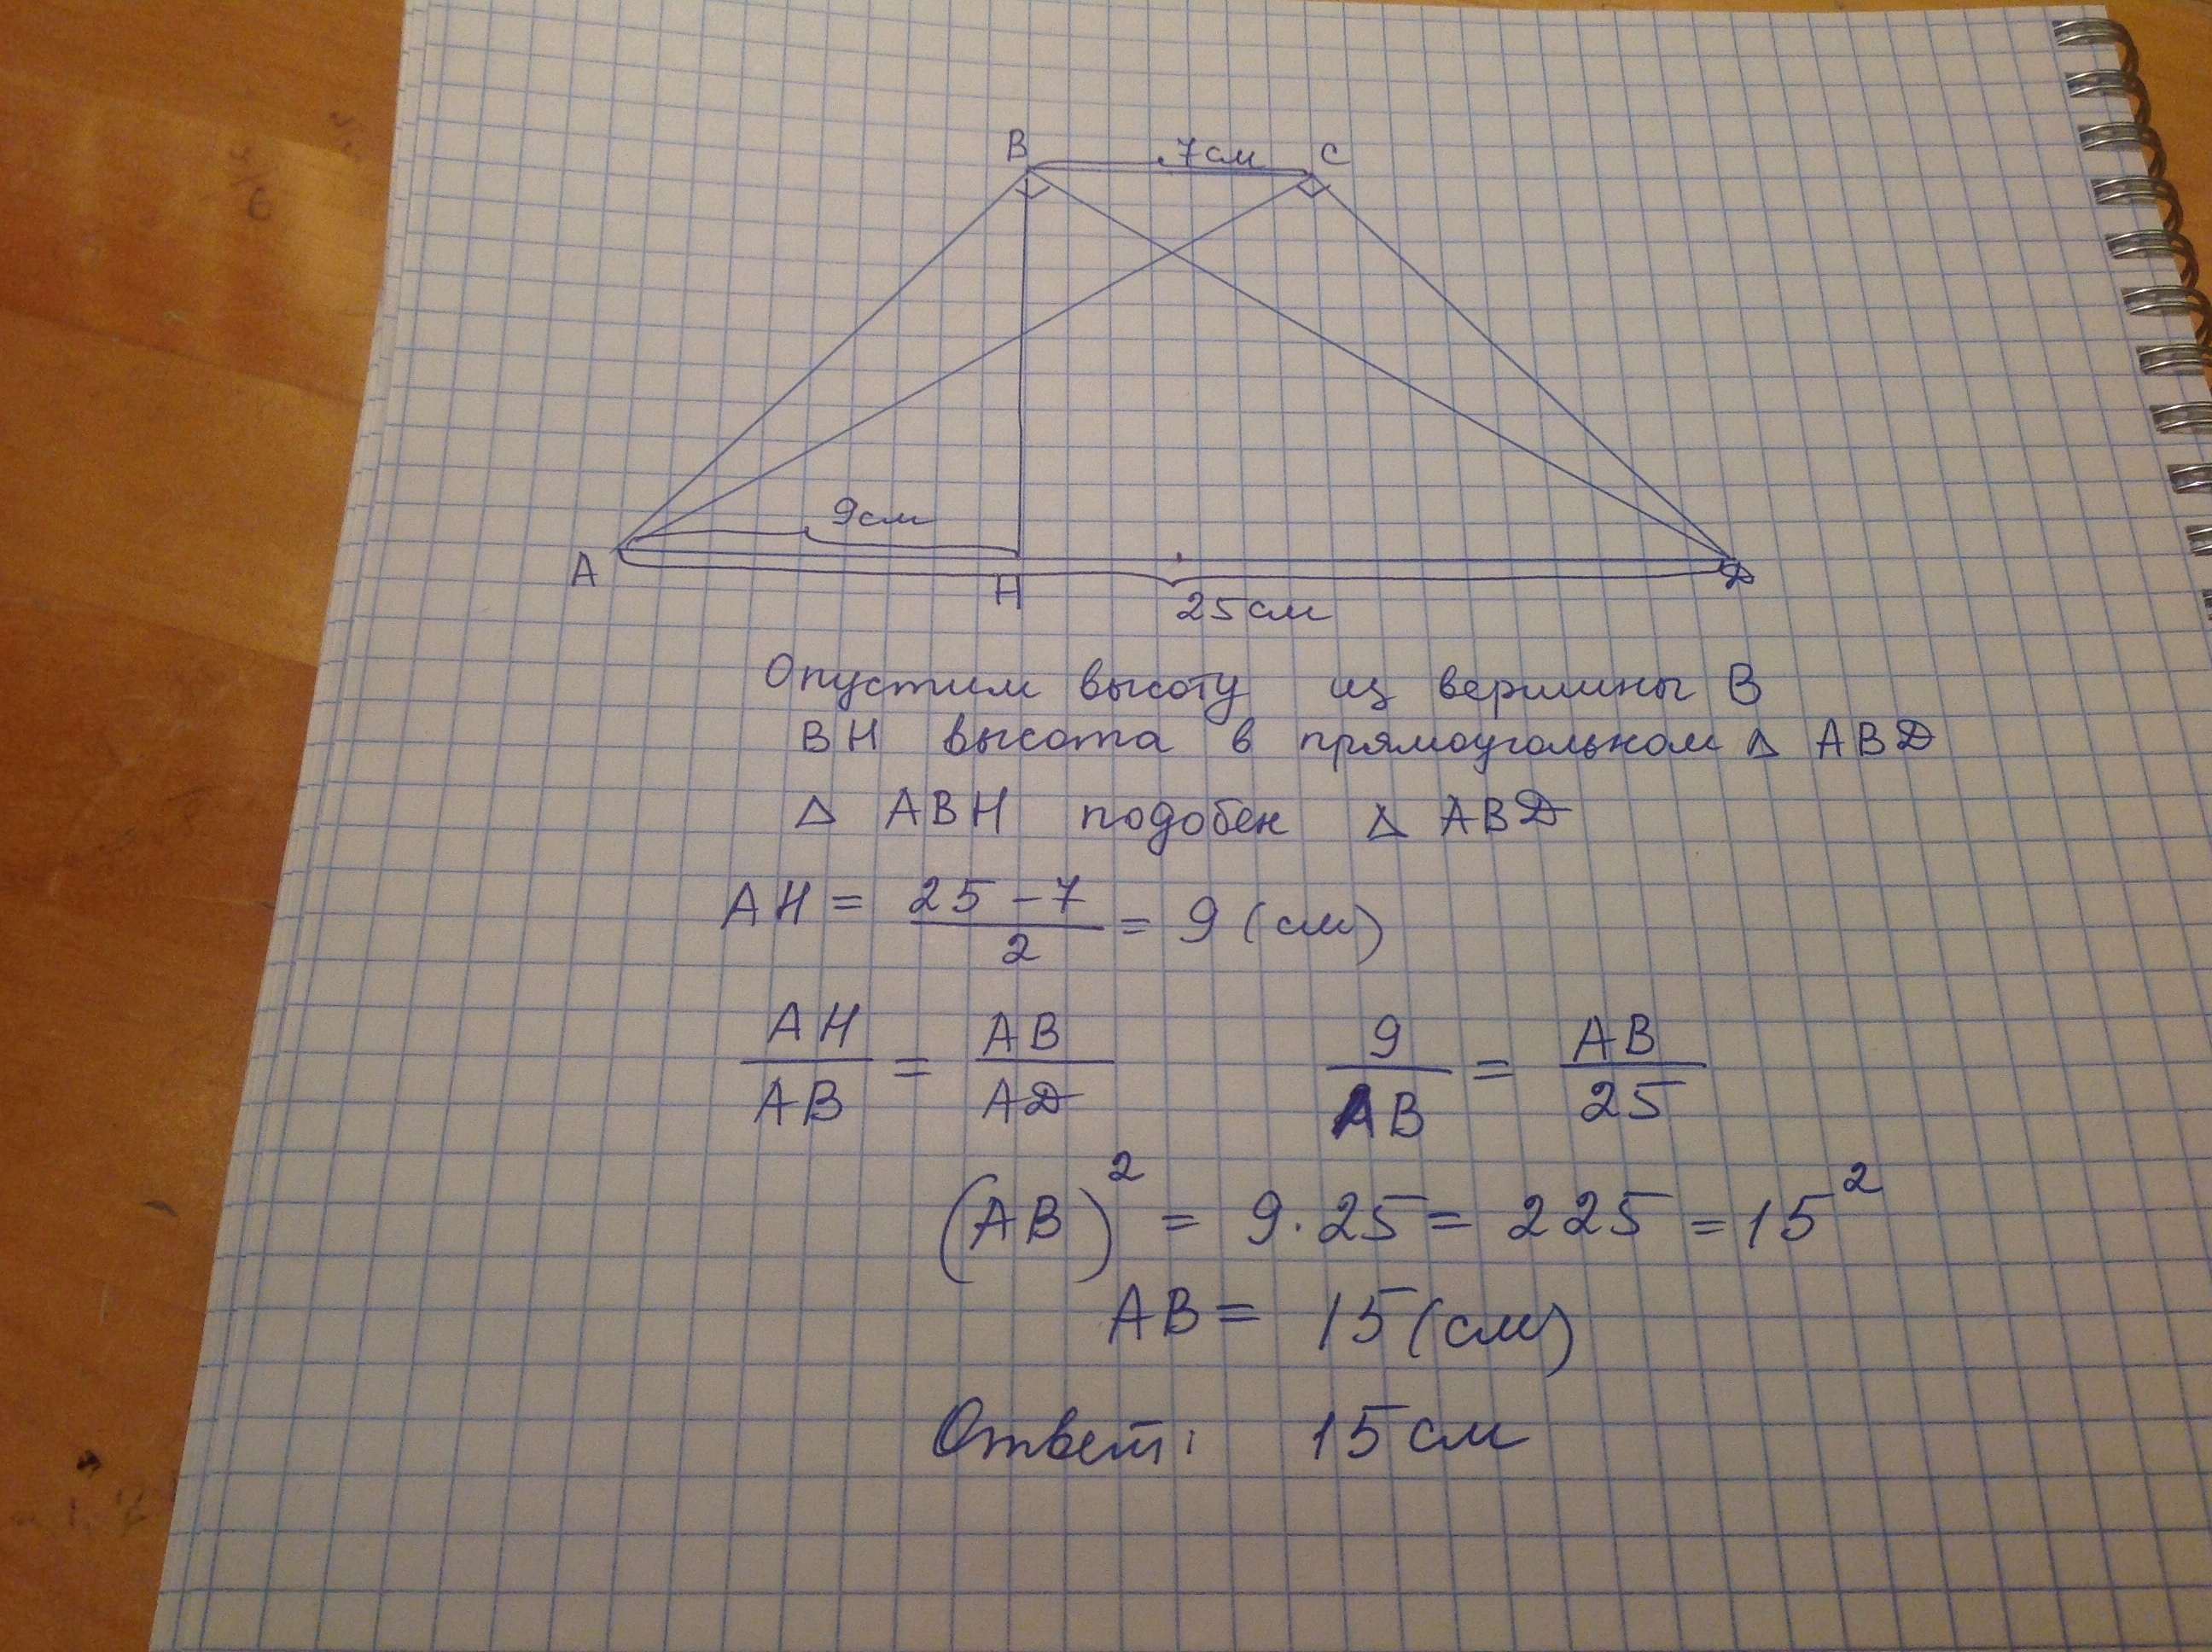 B 7см C
9см
A H D
25см
Опустим высоту из вершины B
BH высота в прямоугольном Δ ABD
Δ ABH подобен Δ ABD
AH = (25 - 7)/2 = 9 (см)
AH/AB = AB/AD 9/AB = AB/25
(AB)² = 9·25 = 225 = 15²
AB = 15 (см)
Ответ: 15 см